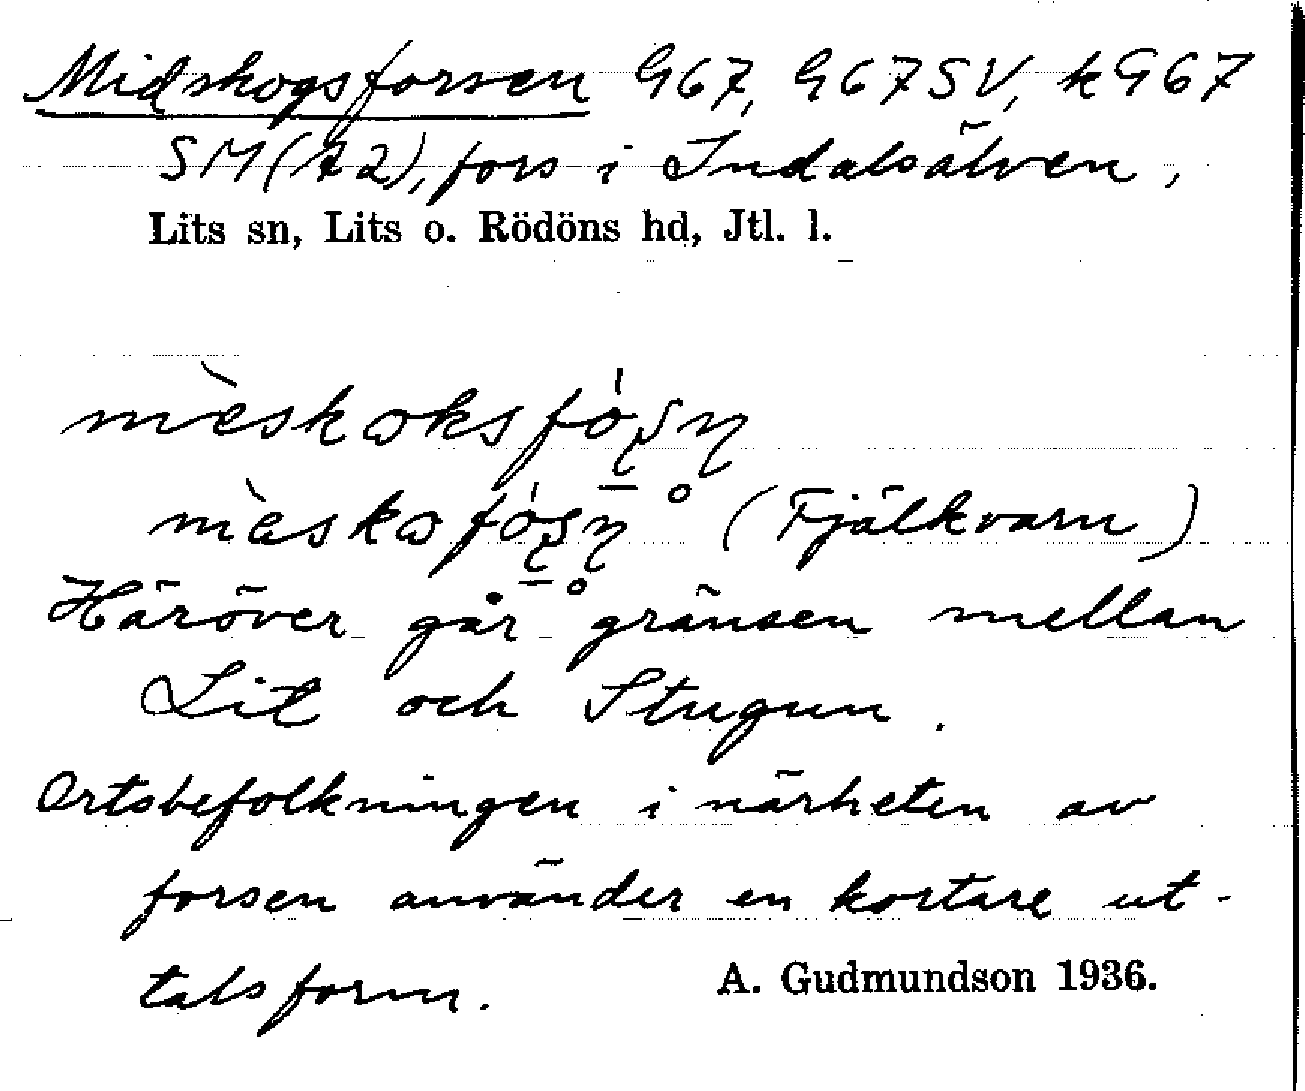 Midskogsforsen G67, G67SV, kG67
SM(A2), fors i Indalsälven,
Lits sn, Lits o. Rödöns hd, Jtl. l.
mèskɷksfó̱ʂn̥
mèskɷfó̱ʂn̥ (Fjälkvarn)
Häröver går gränsen mellan
Lit och Stugun.
Ortsbefolkningen i närheten av
forsen använder en kortare ut-
talsform.
A. Gudmundson 1936.